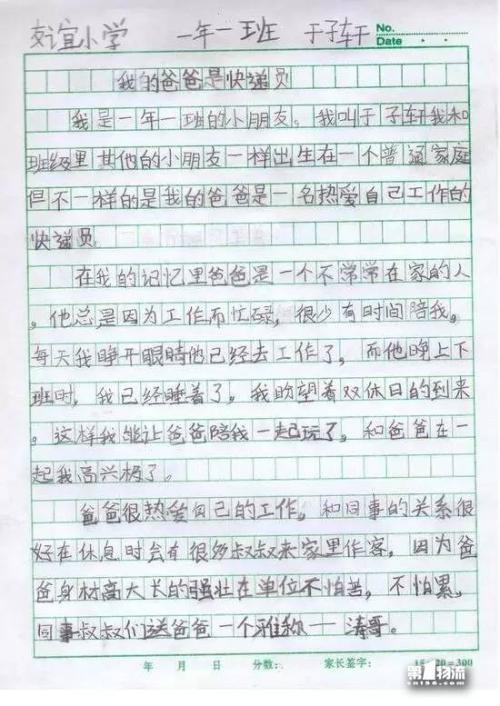 友谊小学 一年一班 于子轩 No.
Date
我的爸爸是快递员
我是一年一班的小朋友。我叫于子轩我和
班级里其他的小朋友一样出生在一个普通家庭
但不一样的是我的爸爸是一名热爱自己工作的
快递员
在我的记忆里爸爸是一个不常常在家的人
。他总是因为工作而忙碌,很少有时间陪我。
每天我睁开眼睛他已经去工作了,而他晚上下
班时,我已经睡着了。我盼望着双休日的到来
。这样我能让爸爸陪我一起玩了,和爸爸在一
起我高兴极了。
爸爸很热爱自己的工作。和同事的关系很
好在休息时会有很多叔叔来家里作客,因为爸
爸身材高大长的强壮在单位不怕苦,不怕累,
同事叔叔们送爸爸一个雅称——涛哥。
年 月 日 分数: 家长签字: 15×20=300
第1物流